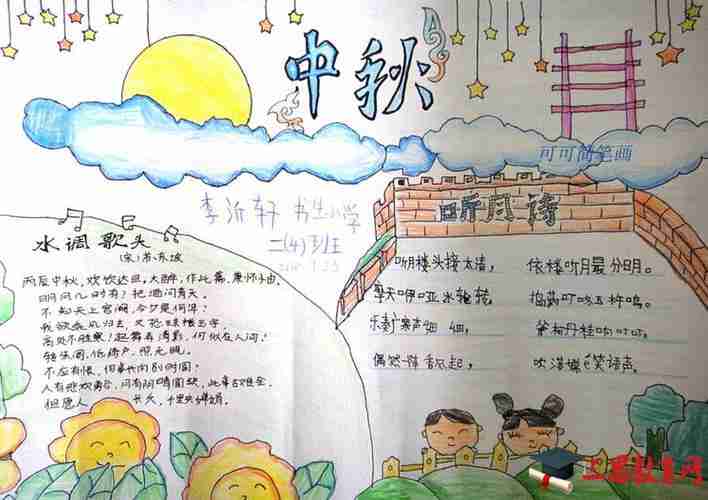 中秋
可可简笔画
李沂轩 书生小学
二(4)班
听月诗
水调歌头
(宋)苏东坡
丙辰中秋，欢饮达旦，大醉，作此篇，兼怀子由。
明月几时有？把酒问青天。
不知天上宫阙，今夕是何年？
我欲乘风归去，又恐琼楼玉宇，
高处不胜寒！起舞弄清影，何似在人间！
转朱阁，低绮户，照无眠。
不应有恨，何事长向别时圆？
人有悲欢离合，月有阴晴圆缺，此事古难全。
但愿人 长久，千里共婵娟。
听月楼头接太清， 依楼听月最分明。
摩天咿哑冰轮转， 捣药叮咚玉杵鸣。
乐奏广寒声细细， 斧柯丹桂响叮叮。
偶然一阵香风起， 吹落嫦娥笑语声。
教育网